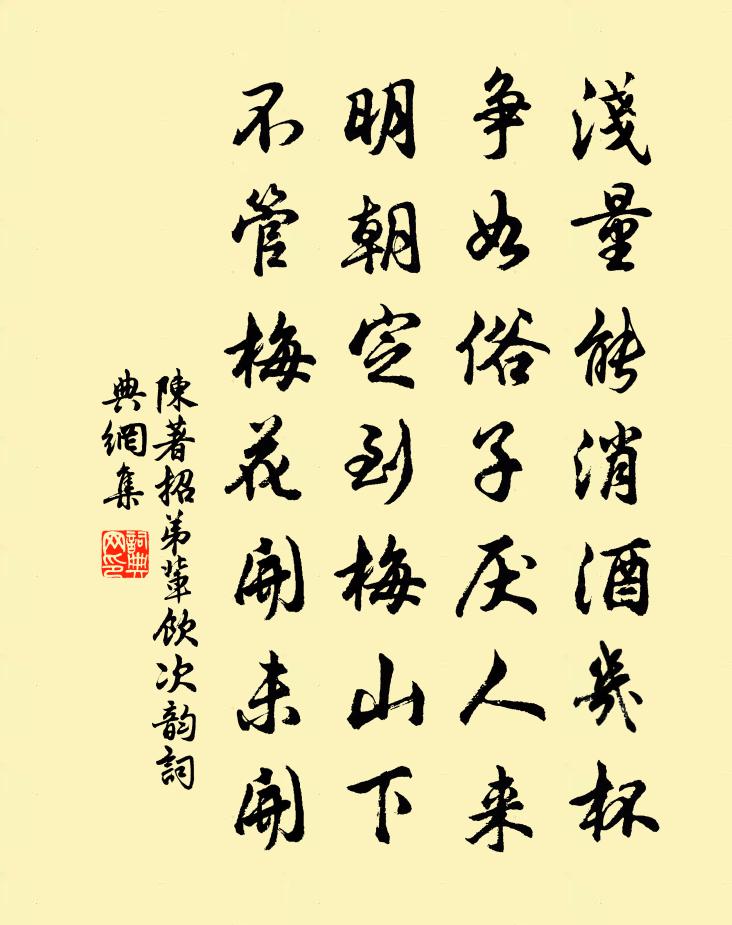 淺量能消酒幾杯
爭如俗子厌人来
明朝定到梅山下
不管梅花開未開
陳著招弟輩飲次韵詞
典網集
詞典
网印